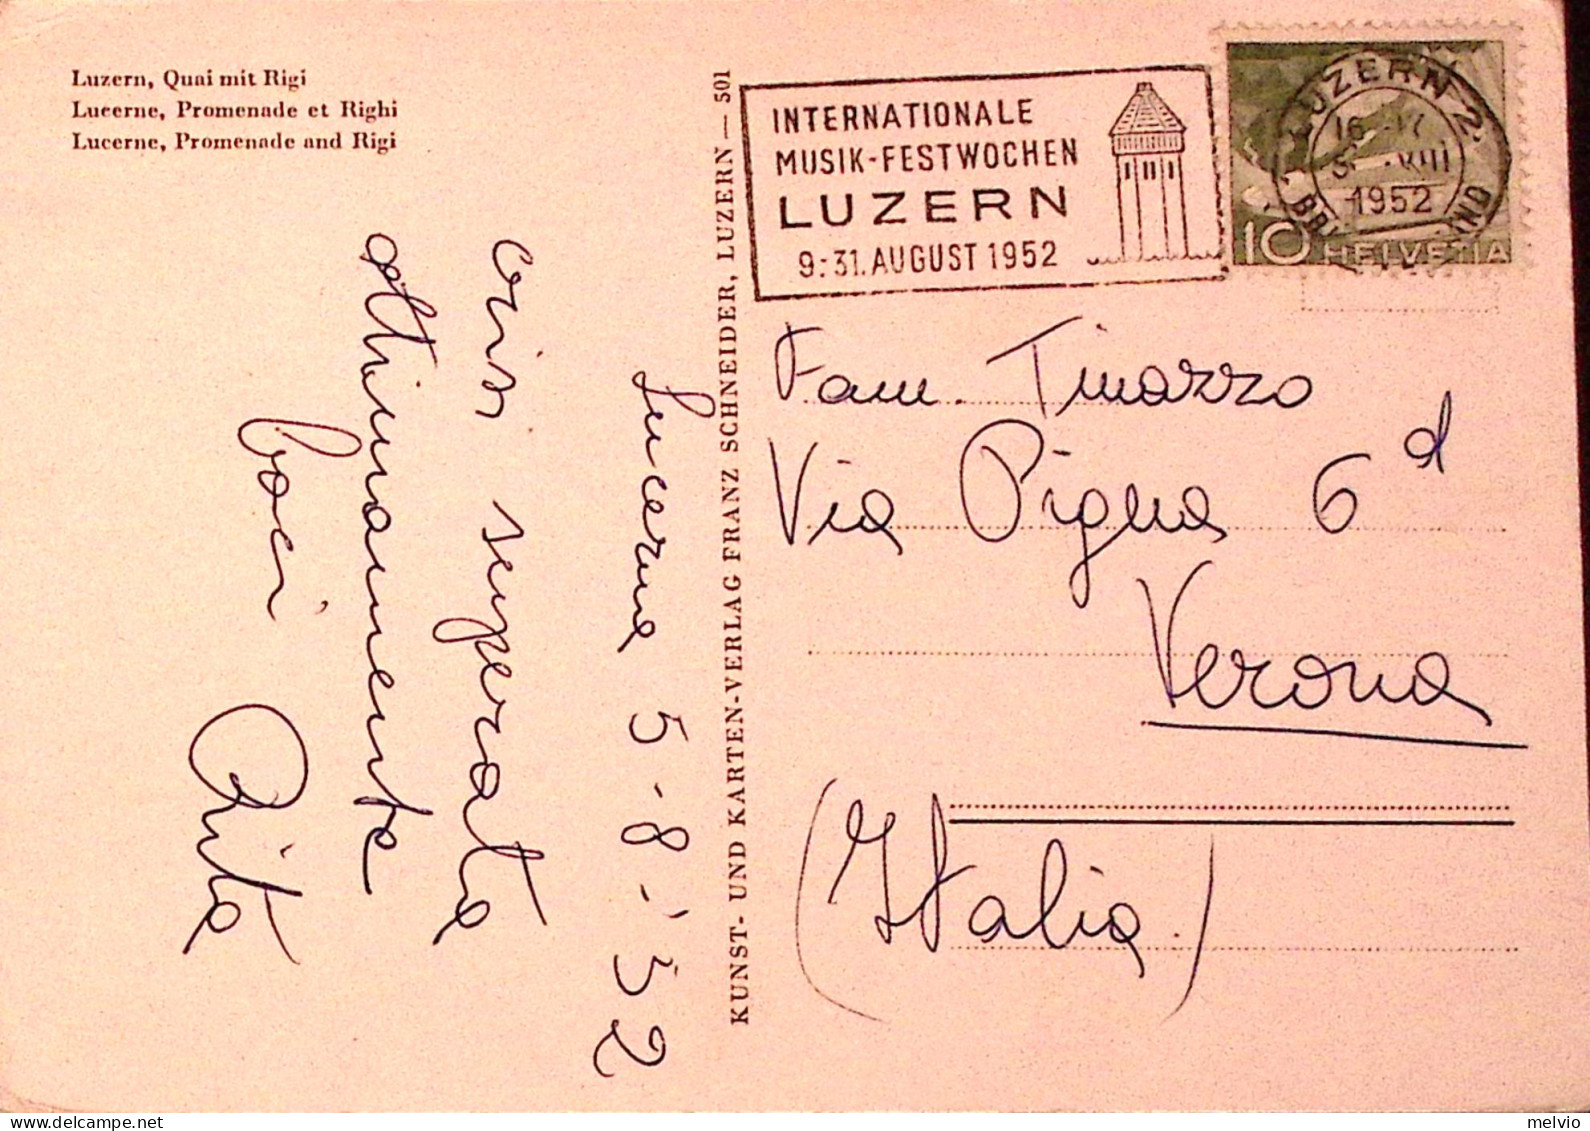 Luzern, Quai mit Rigi
Lucerne, Promenade et Righi
Lucerne, Promenade and Rigi
Lucerna 5-8-'52
crisi superata
ottimamente
baci
Rita
KUNST- UND KARTEN-VERLAG FRANZ SCHNEIDER, LUZERN — 501
INTERNATIONALE
MUSIK-FESTWOCHEN
LUZERN
9.-31. AUGUST 1952
LUZERN 2
VIII
1952
10 HELVETIA
Fam. Tinazzo
Via Pigna 6 d
Verona
(Italia)
melvio